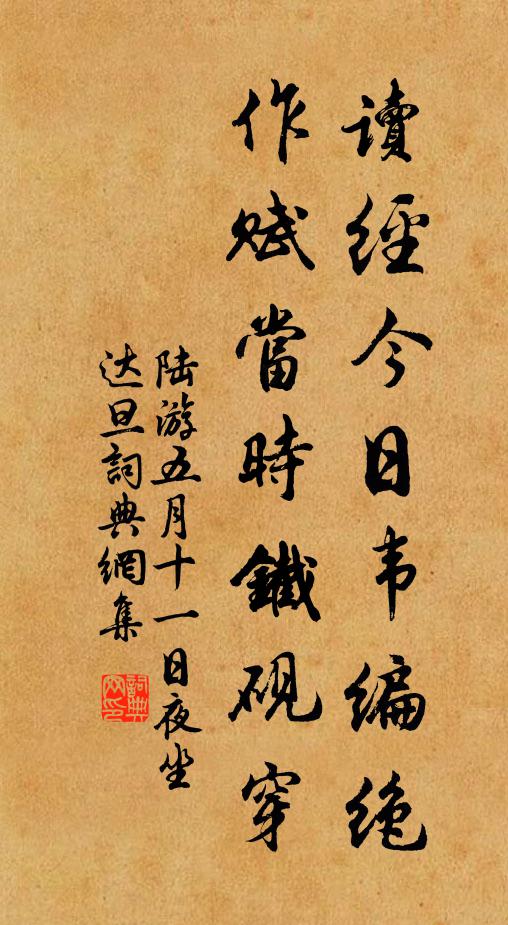 讀經今日韦編絶
作賦當時鐵硯穿
陆游五月十一日夜坐
达旦詞典網集
詞典
网印